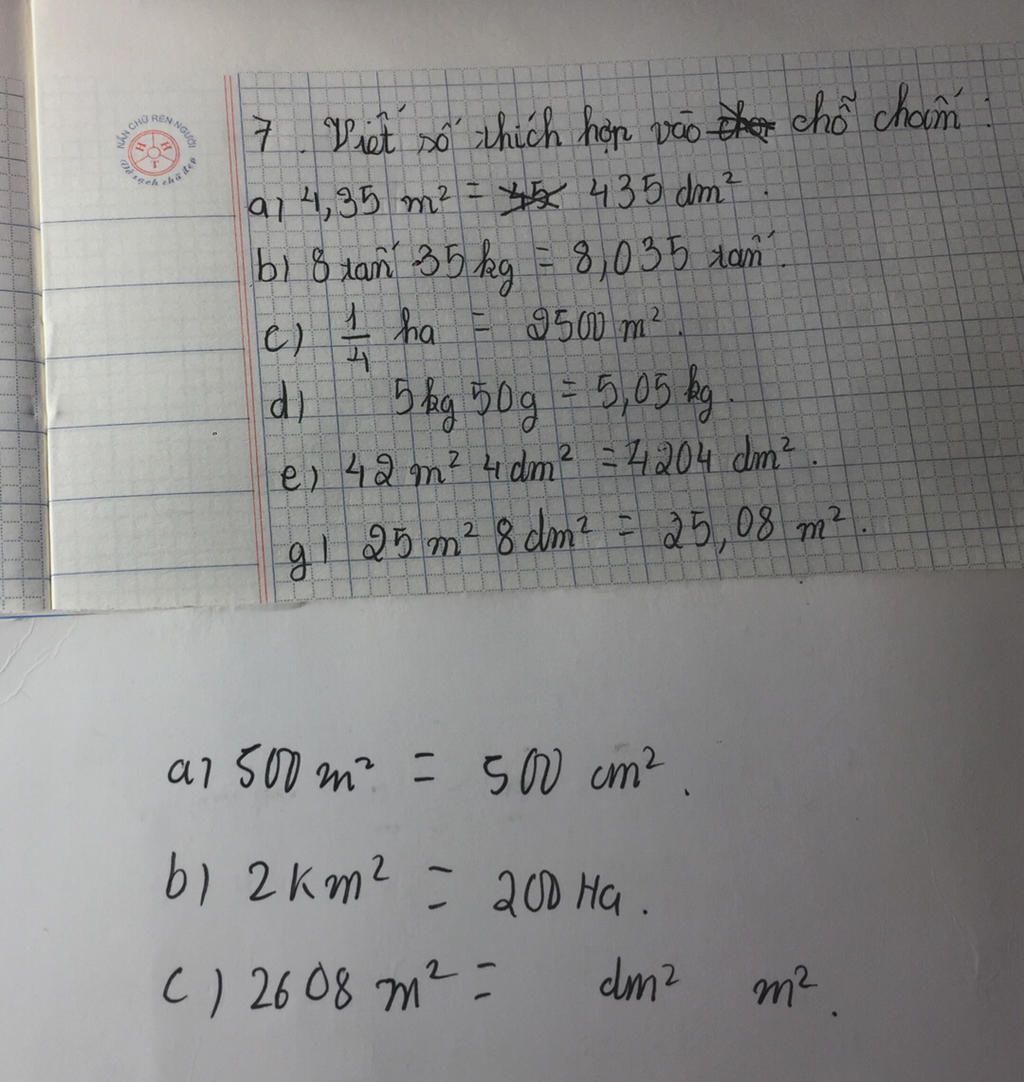 NẮN CHỮ RÈN NGƯỜI
H H T
Vở sạch chữ đẹp
7. Viết số thích hợp vào chỗ chấm:
a) 4,35 m² = 435 dm².
b) 8 tấn 35 kg = 8,035 tấn.
c) 1/4 ha = 2500 m².
d) 5kg 50g = 5,05 kg.
e) 42 m² 4 dm² = 4204 dm².
g) 25 m² 8 dm² = 25,08 m².
a) 500 m² = 500 cm².
b) 2 Km² = 200 Ha.
c) 2608 m² = dm² m².